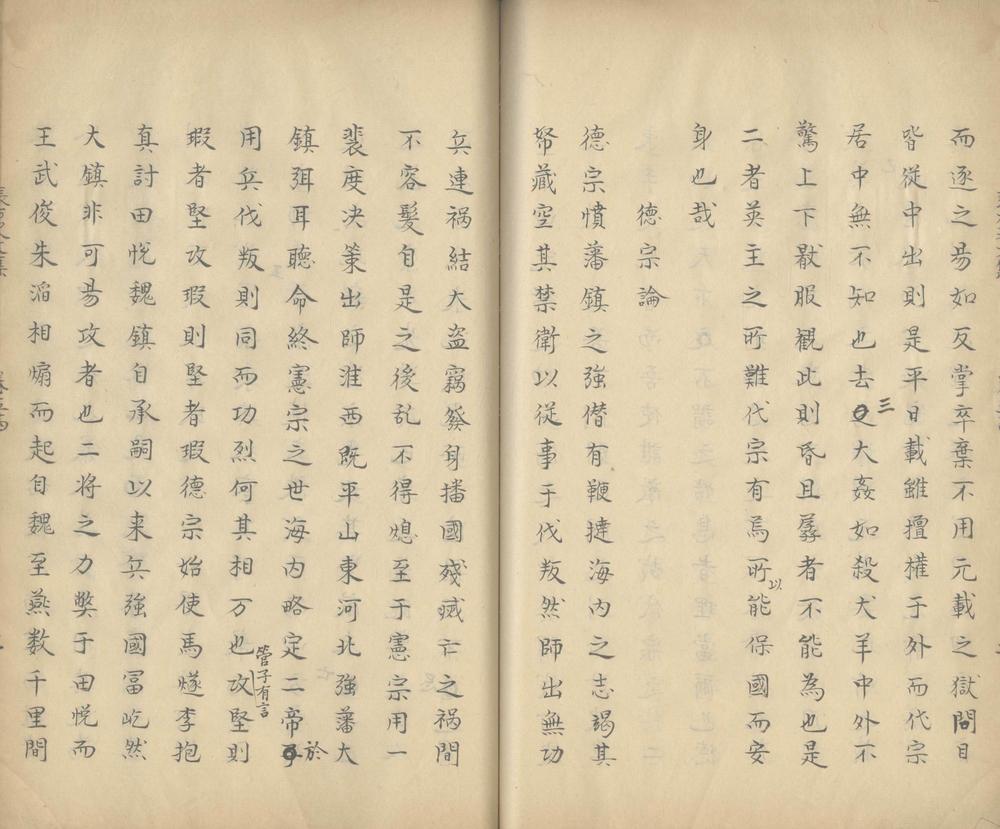 而逐之昜如反掌卒棄不用元載之獄問目
皆從中出則是平日載雖擅權于外而代宗
居中無不知也去三大姦如殺犬羊中外不
驚上下猒服觀此則昏且孱者不能為也是
二者英主之所難代宗有焉所以能保國而安
身也哉
德宗論
德宗憤藩鎮之強僣有鞭撻海内之志竭其
帑藏空其禁衛以從事于伐叛然師出無功
兵連禍結大盗竊發身播國殘烕亡之禍間
不容髮自是之後乱不得熄至于憲宗用一
裴度决策出師淮西既平山東河北強藩大
鎮弭耳聽命終憲宗之世海内略定二帝於
用兵伐叛則同而功烈何其相万也管子有言攻堅則
瑕者堅攻瑕則堅者瑕德宗始使馬燧李抱
真討田悅魏鎮自承嗣以来兵強國冨屹然
大鎮非可昜攻者也二将之力獘于田悅而
王武俊朱滔相煽而起自魏至燕数千里間